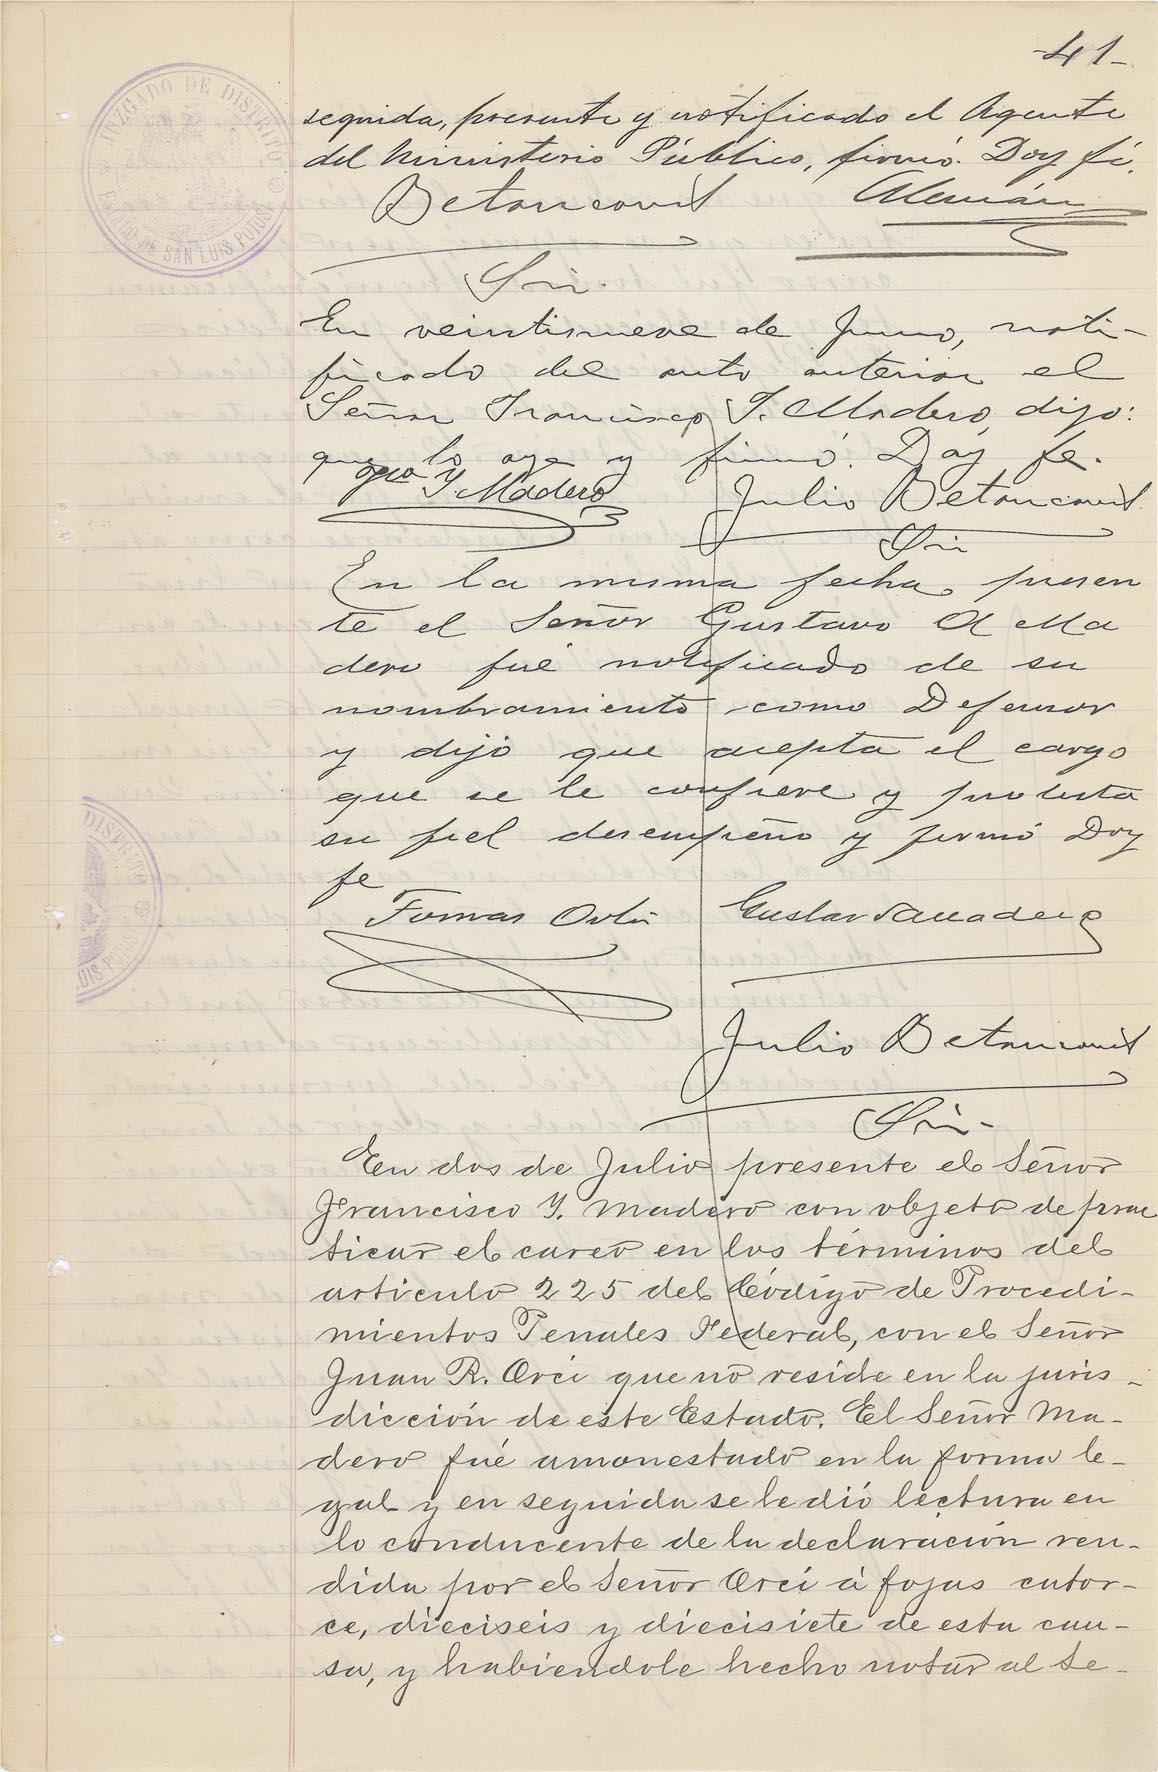 -41-
JUZGADO DE DISTRITO
ESTADO DE SAN LUIS POTOSI
seguida, presente y notificado el Agente
del Ministerio Público, firmó. Doy fé.
Betancourt Alemán
Srio.
En veintinueve de Junio, noti-
ficado del auto anterior el
Señor Francisco I. Madero, dijo:
que lo oye y firmó. Doy fe.
I. Madero Julio Betancourt
Srio
En la misma fecha, presen
te el Señor Gustavo A Ma
dero fué notificado de su
nombramiento como Defensor
y dijo que acepta el cargo
que se le confiere y protesta
su fiel desempeño y firmó Doy
fe
DISTRITO
UIS POTOSI
Tomas Ortiz Gustavo A Madero
Julio Betancourt
Srio.
En dos de Julio presente el Señor
Francisco Y. Madero con objeto de prac
ticar el careo en los términos del
articulo 225 del Código de Procedi-
mientos Penales Federal, con el Señor
Juan R. Orci que no reside en la juris-
dicción de este Estado. El Señor Ma-
dero fué amonestado en la forma le-
gal y en seguida se le dió lectura en
lo conducente de la declaración ren-
dida por el Señor Orci á fojas cator-
ce, dieciseis y diecisiete de esta cau-
sa, y habiendole hecho notar al Se-